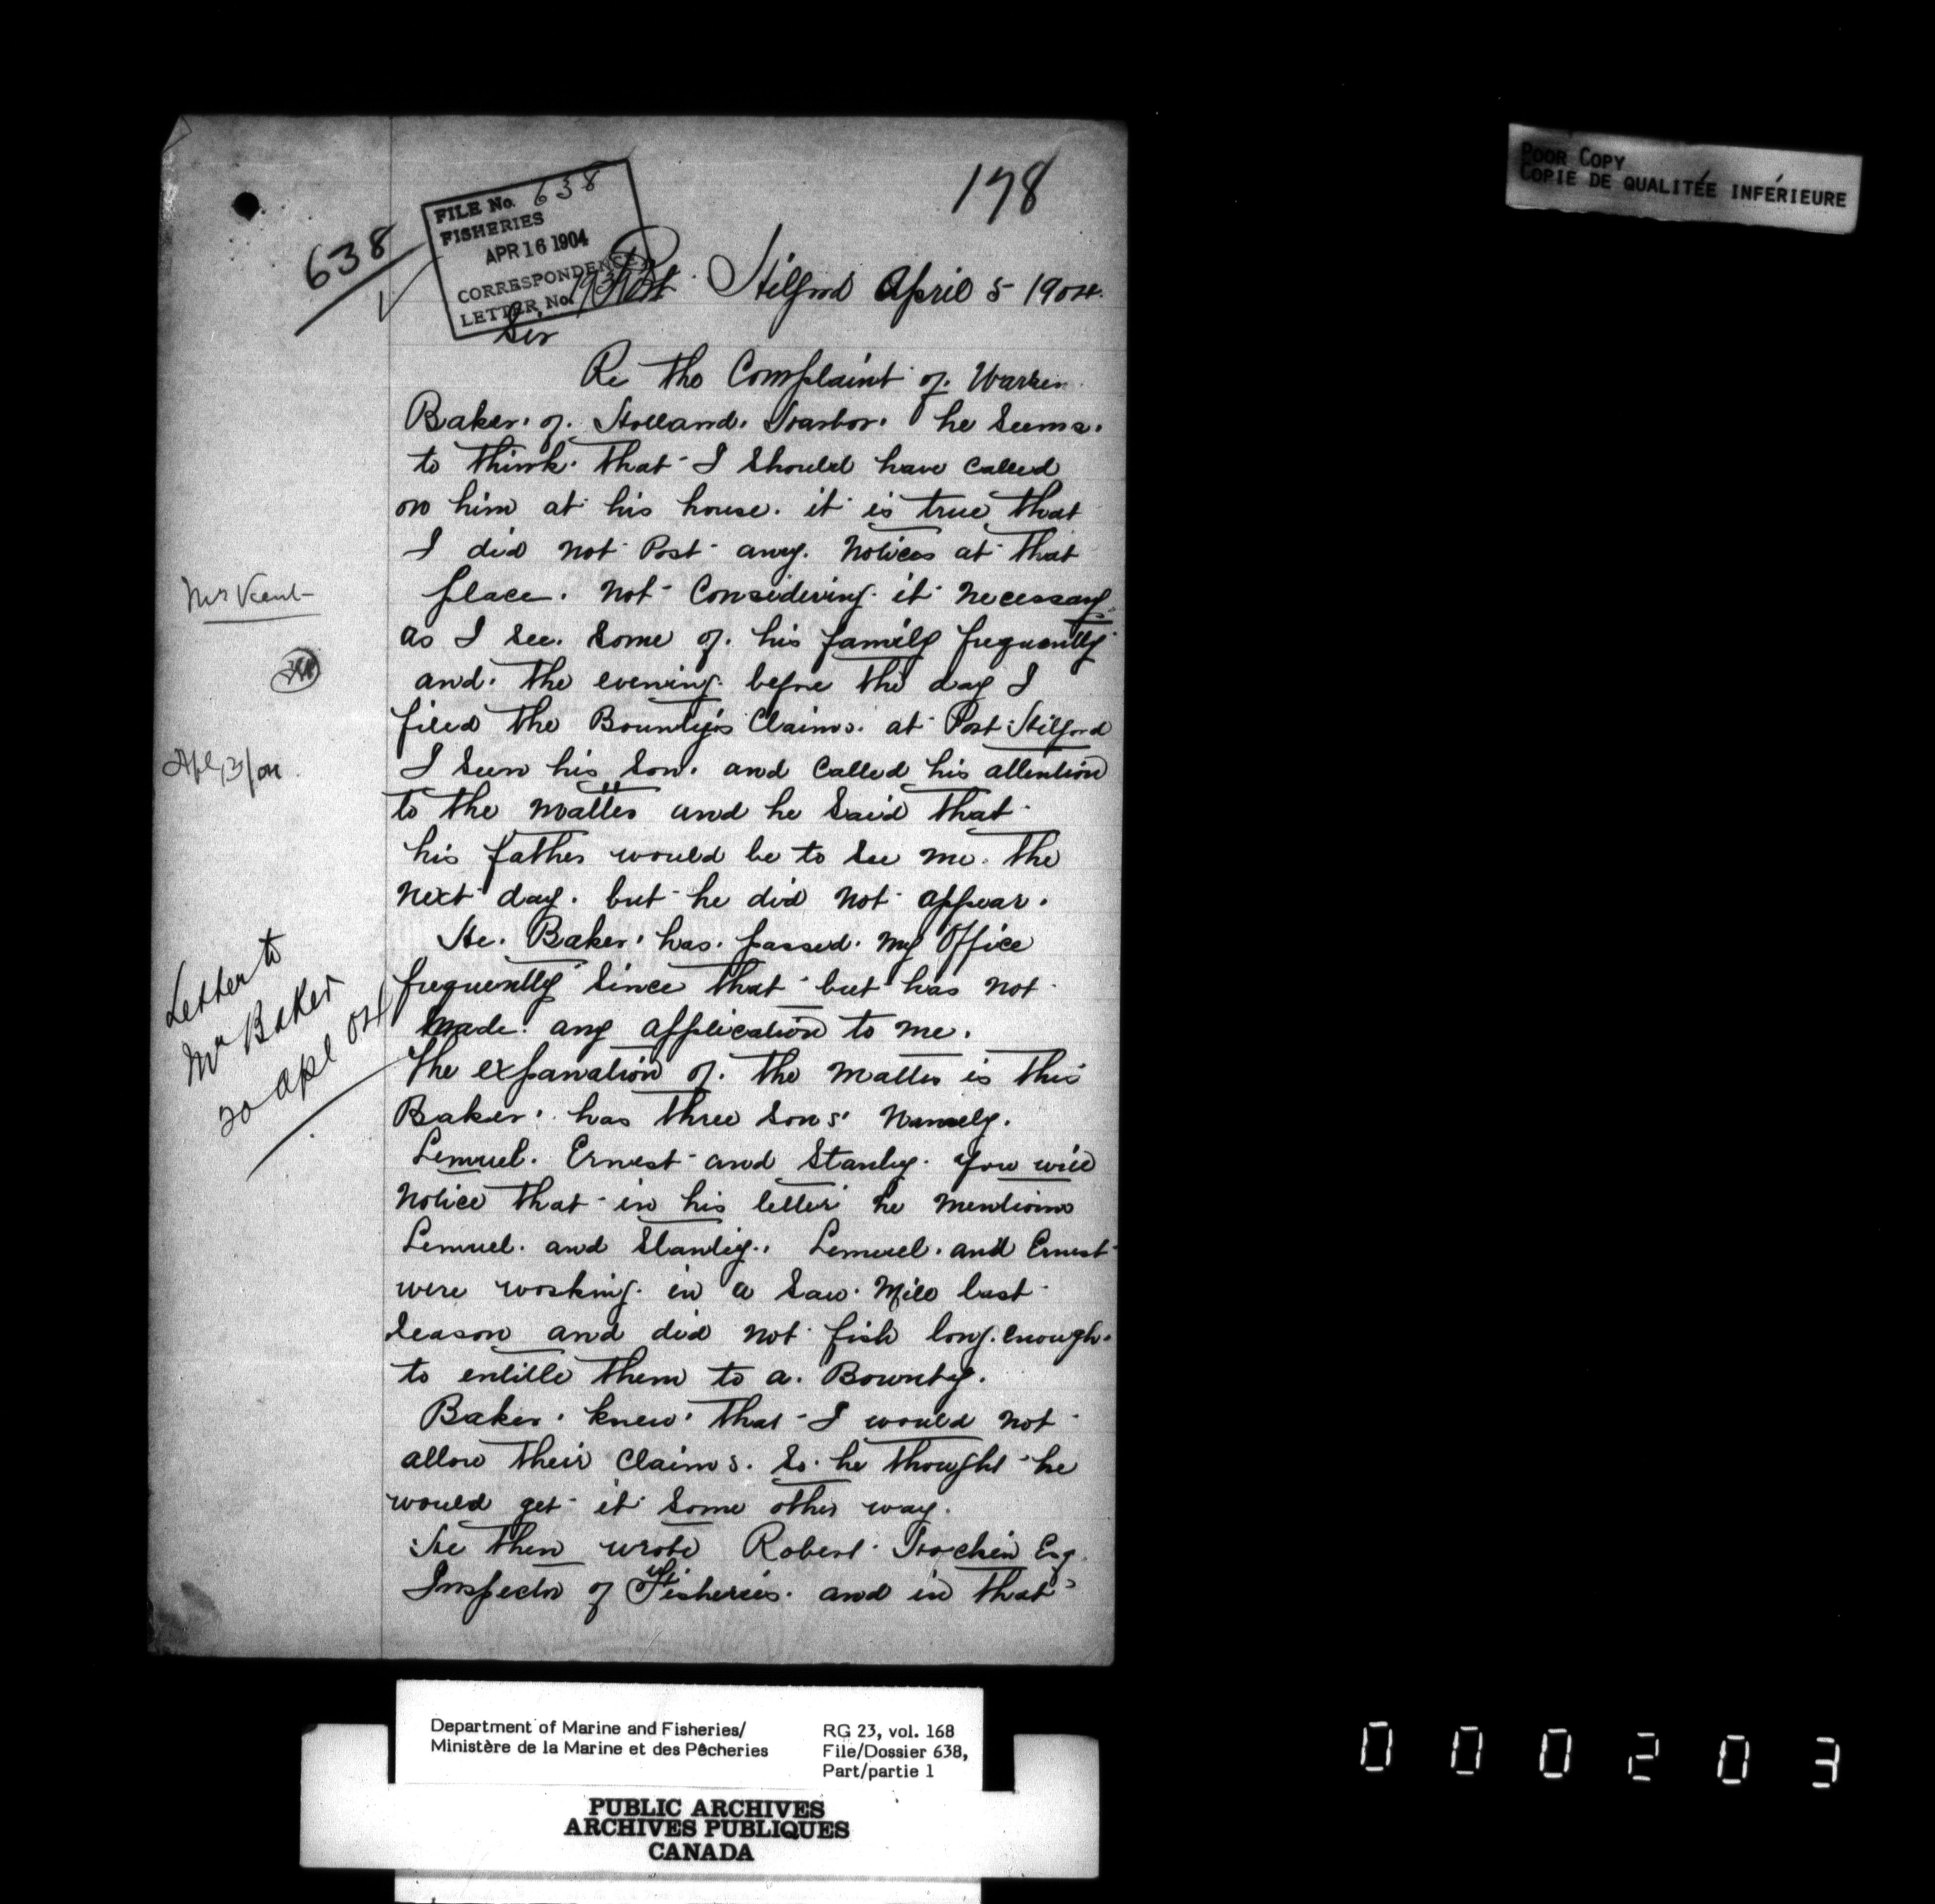 178
POOR COPY
COPIE DE QUALITÉE INFÉRIEURE
FILE No. 638
FISHERIES
APR 16 1904
CORRESPONDENCE
LETTER No.
638
Port Hilford April 5 1904.
Sir
Re the Complaint of Warren
Baker. of. Holland. Harbor. he Seems.
to think. that I Should have Called
on him at his house. it is true that
I did not Post any. Notices at that
place. not Considering it necessary
as I See. Some of. his family frequently
and. the evening before the day I
filed the Bounty's Claims. at Port Hilford
I Seen his Son. and Called his attention
to the matter and he Said that
his father would be to See me. the
next day. but he did not appear.
He. Baker. has. passed. my Office
frequently Since that but has not
made any application to me.
The expanation of. the matter is this
Baker. has three Sons. Namely.
Lemuel. Ernest and Stanley. You will
Notice that in his letter he mentions
Lemuel. and Stanley. Lemuel. and Ernest
were working in a Saw. Mill last
Season and did not fish long. enough.
to entitle them to a. Bounty.
Baker. knew. that I would not
allow their Claims. So. he thought he
would get it Some other way.
He then wrote Robert Hockin Esq.
Inspector of Fisheries. and in that
Mr Kent
Apl 13/04.
Letter to
Mr Baker
20 Apl 04
Department of Marine and Fisheries/
Ministère de la Marine et des Pêcheries
RG 23, vol. 168
File/Dossier 638,
Part/partie 1
PUBLIC ARCHIVES
ARCHIVES PUBLIQUES
CANADA
000203